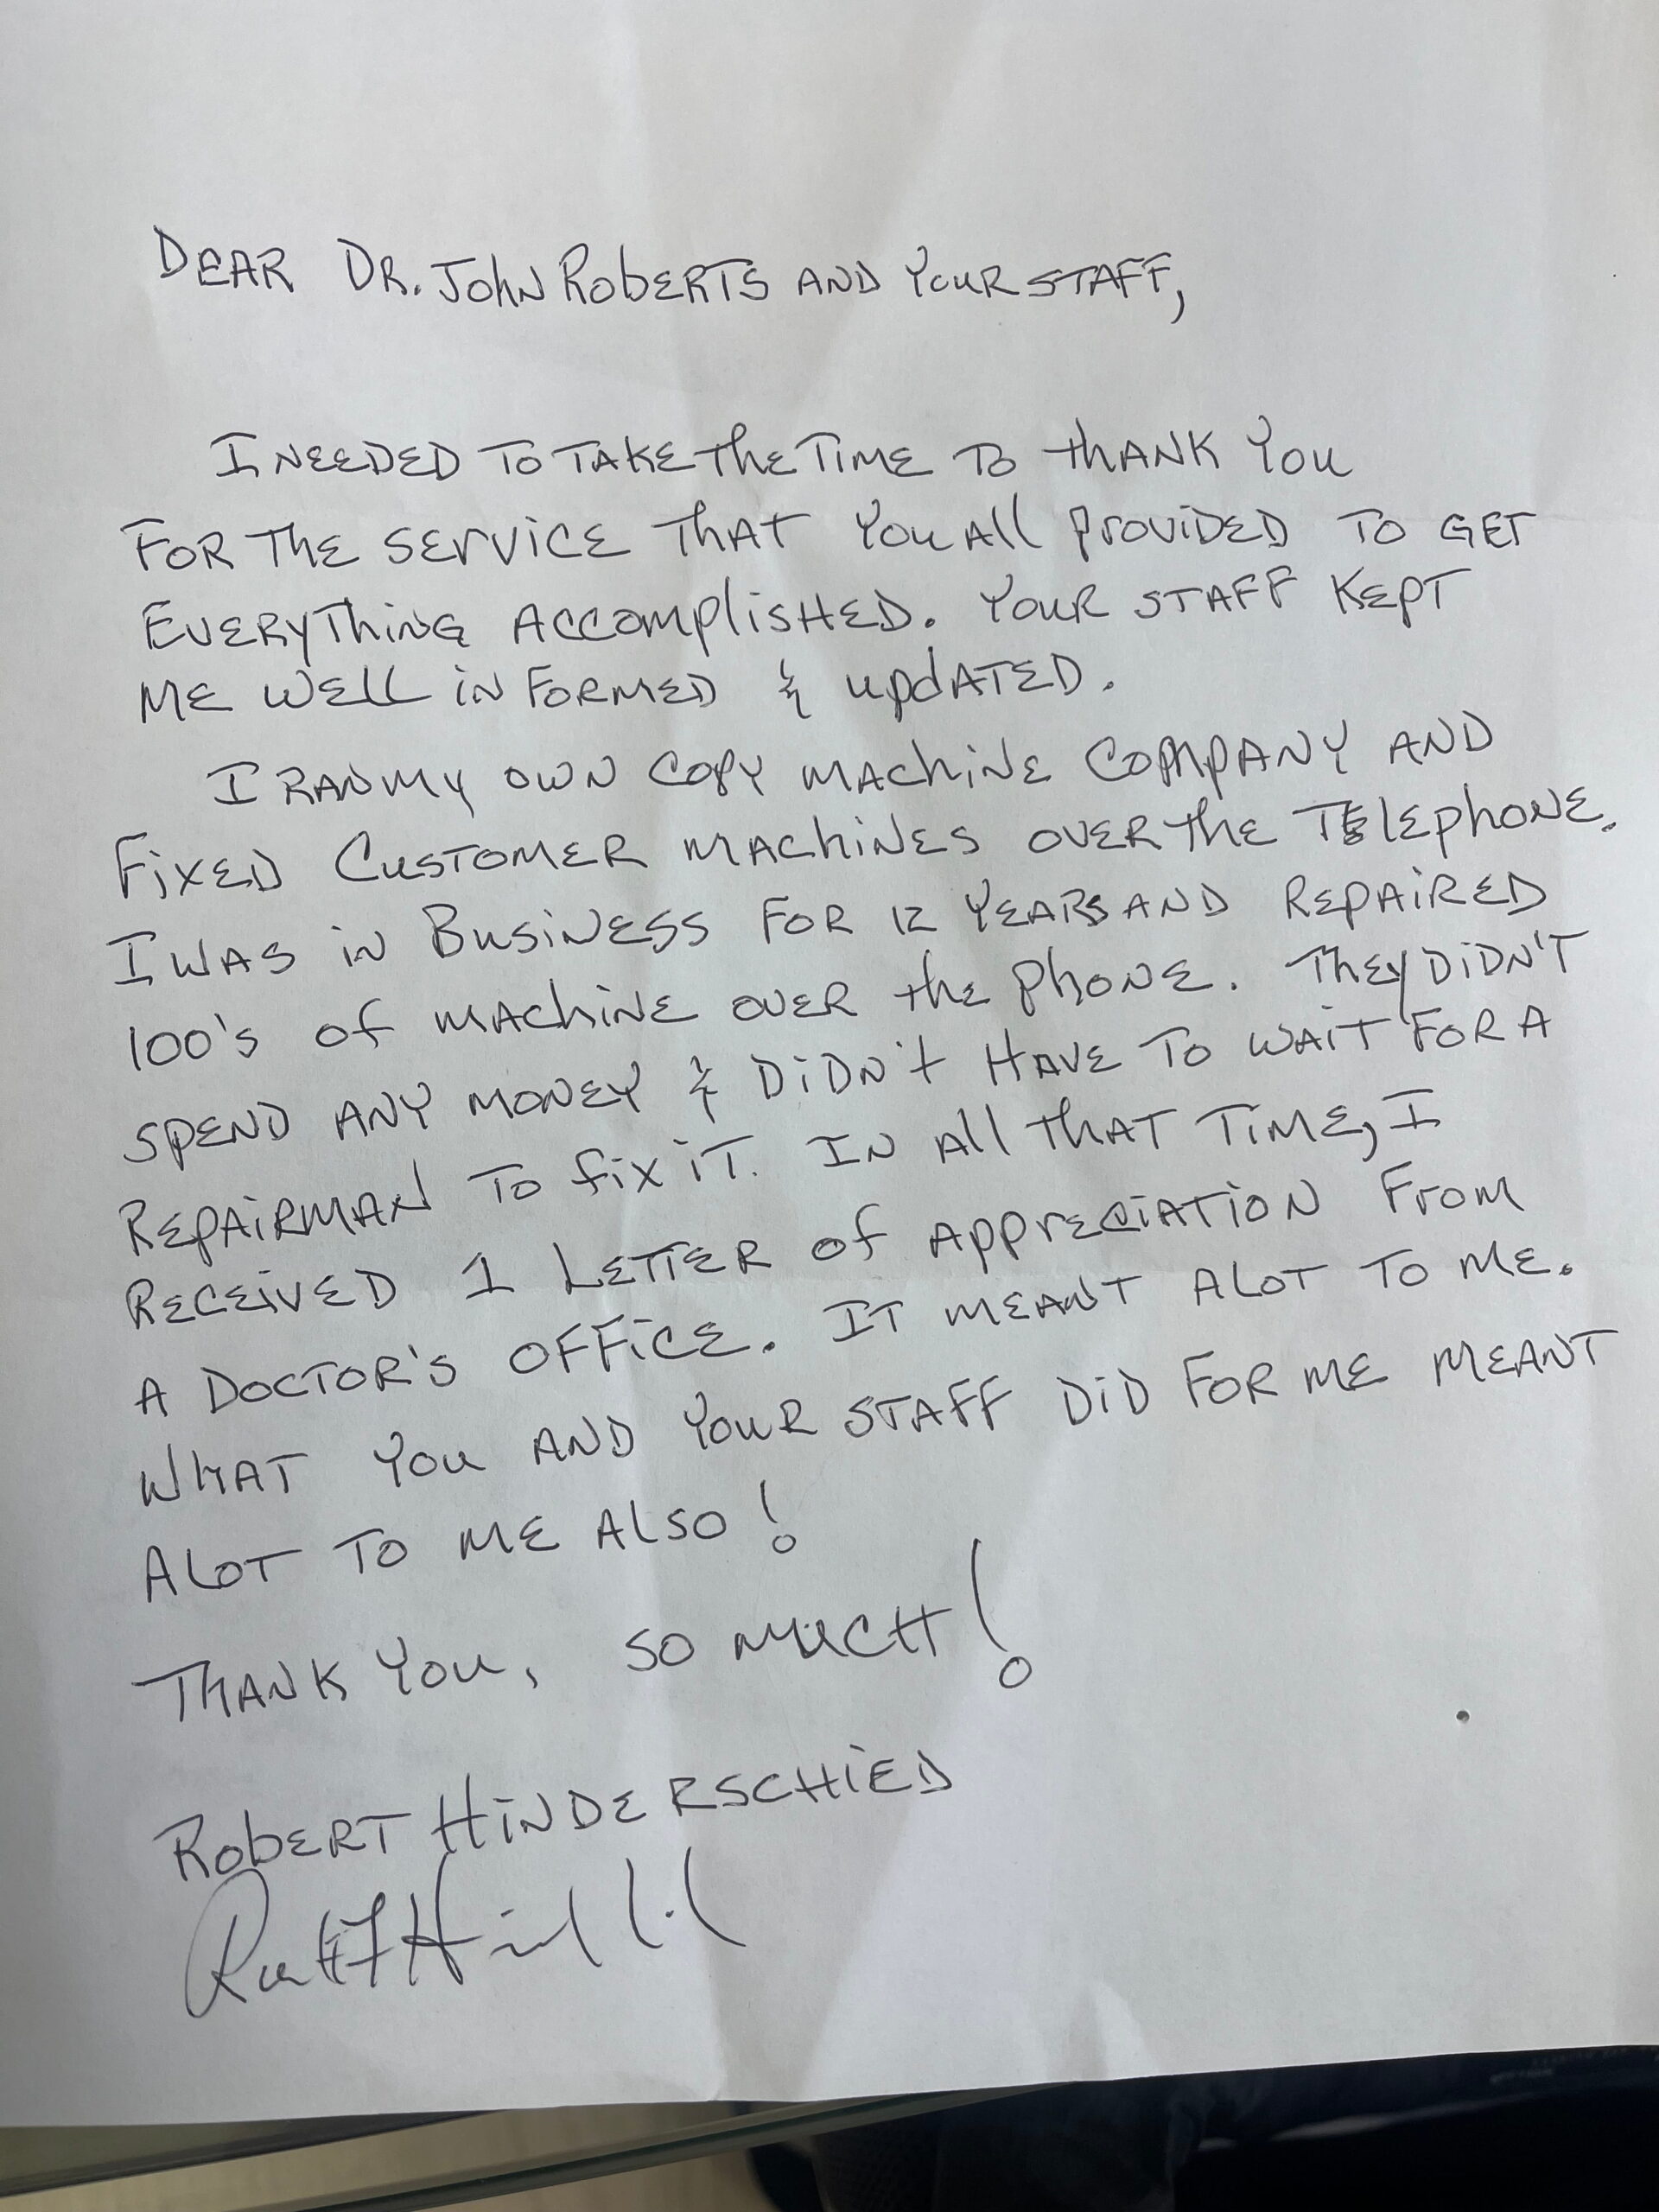 DEAR DR. JOHN ROBERTS AND YOUR STAFF,
I NEEDED TO TAKE THE TIME TO THANK YOU
FOR THE SERVICE THAT YOU ALL PROVIDED TO GET
EVERYTHING ACCOMPLISHED. YOUR STAFF KEPT
ME WELL INFORMED & UPDATED.
I RAN MY OWN COPY MACHINE COMPANY AND
FIXED CUSTOMER MACHINES OVER THE TELEPHONE.
I WAS IN BUSINESS FOR 12 YEARS AND REPAIRED
100'S OF MACHINE OVER THE PHONE. THEY DIDN'T
SPEND ANY MONEY & DIDN'T HAVE TO WAIT FOR A
REPAIRMAN TO FIX IT. IN ALL THAT TIME, I
RECEIVED 1 LETTER OF APPRECIATION FROM
A DOCTOR'S OFFICE. IT MEANT ALOT TO ME.
WHAT YOU AND YOUR STAFF DID FOR ME MEANT
ALOT TO ME ALSO!
THANK YOU, SO MUCH!
ROBERT HINDERSCHIED